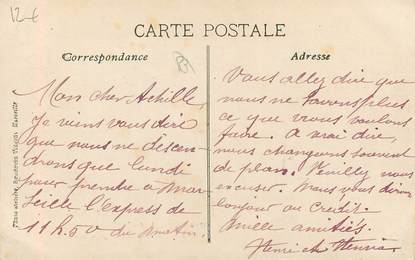 12 €
CARTE POSTALE
Correspondance
Adresse
Mon cher Achille,
Je viens vous dire
que nous ne descen-
drons que lundi
pour prendre à Mar-
seille l'express de
11h50 du matin.
Vous allez dire que
nous ne savons plus
ce que nous voulons
faire. A vrai dire,
nous changeons souvent
de plan. Veuillez nous
excuser. Nous vous dirons
bonjour au Crédit.
Mille amitiés.
Henri